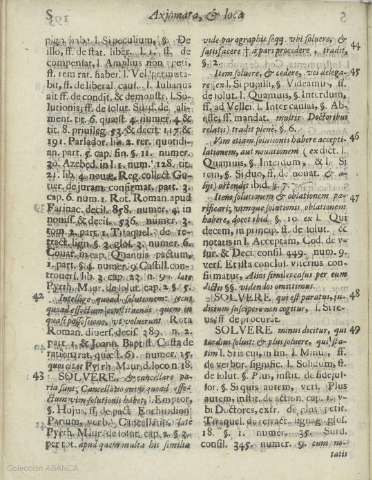 S
Axiomata, & loca
pign. l. Speculium, §. De
illo, ff. de stat. liber. L. 1. ff. de
compensat. l. Amplius non
ff. rem rat. haber. l.
bit, ff. de liberal. caus. l. Iulianus
ait ff. de condit. & demonst. l. So-
lutionis, ff. de solut. Suid. de
ment. tit. 6. quæst. 4. numer. 4 &
tit. 8. priuileg. 53. & decis. 117. &
191. Parlador. lib. 2. rer. quotidi-
an. part. 5. cap. fin. §. 11. numer.
30. Azebed. in l. 1. num. 128. tit.
21. lib. 4. nouæ. Reg. collect Gu-
tier. de juram. confirmat. part. 3.
cap. 6. num. 1. Rot. Roman. apud
Farinac. decis. 858. numer. 4. in
nouiss. & decis. 526. numer. 3.
tom. 2. part. 1. Tiraquel. de re-
tract. lign. §. 3. glos. 2. numer. 6.
Couar. in cap. Quamuis pactum,
1. part. §. 4. numer. 9. Castill. con-
trouers. lib. 3. cap. 22. n. 59. late
Pyrrh. Maur. de solut. cap. 2. §. 5.
42 Intellige quoad solutionem: secus
quoad effectum constituendi quem in
quasi possessione, vt voluerunt Rota
Roman. diuers. decis. 389. n. 2.
part. 1. & Joann. Baptist. Costa de
ration. rat. quæst. 61. numer. 15.
quos late Pyrrh. Maur. d. loco n. 18.
43 SOLVERE, & cancellare pa-
ria sunt; Cancellatio enim quoad effe-
ctum vim solutionis habet, l. Emptor,
§. Hojus, ff. de pact. Enchiridion
Parium, verb. Cancellatio, late
Pyrrh. Maur. de solut. cap. 2. §. 2.
per tot. apud quem multa his similia
vide paragraphis seqq. vbi soluere, &
satisfacere, æ pars procedere, tradit, 44
§. 2.
Item soluere, & cedere, vel delega- 45
re; ex l. Si pupilli, §. Videamus, ff.
de solut. l. Quamuis, §. Interdum,
ff. ad Vellei. l. Inter causas, §. Ab-
esse, ff. mandat. multis Doctoribus
relatis) tradit plene, §. 6.
Vim etiam solutionis habere accepti- 46
lationem, aut nouationem, ex dict. l.
Quamuis, §. Interdum, & l. Si
rem, §. Si duo, ff. de nouat. & a-
lijs, ostendit ibid. §. 7.
Item solutionem & oblationem pa- 47
rificari, nempe solutionis, oblationem
habere, docet ibid. §. 10. ex l. Qui
decem, in princip. ff. de solut. &
notatis in l. Acceptam, God. de vs-
sur. & Deci. consil. 449. num. 9.
versi. Et ista conclus. vulcius con-
firmatur, Alias similes casus per eum
dictis §§. videndos omittimus.
SOLVERE, qui est paratus, ju- 48
dicium suscipere non cogitur, l. Sire-
us ff. de procurat.
SOLVERE minus dicitur, qui 49
tardius soluit: & plus soluere, qui sta-
tim l. Sin cui, in fin. l. Minus, ff.
de verbor. signific. l. Solutum, ff.
de solut. §. Plus, instit. de fidejus-
sor. §. Siquis autem, vers. Plus
autem, instit. de action. cap. 10. v-
bi Doctores, extr. de plus petit.
Tiraquel. de retract. lignag. glos.
18. §. 1. numer. 35. Surd.
consil. 345. numer. 9. cum no-
tatis
Colección ABANCA